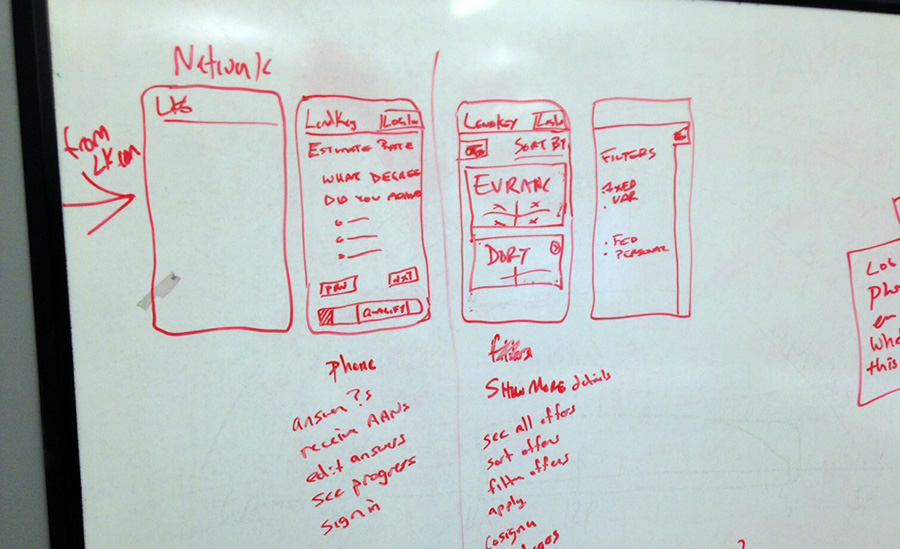 Network
from
LK.com
LendKey
Log In
ESTIMATE RATE
WHAT DEGREE
DID YOU
PREV
NXT
QUALIFY
LENDKEY
SORT BY
DORT
FILTERS
FIXED
VAR
FED
PERSONAL
phone
answer ?s
receive AANs
edit answers
see progress
sign in
filters
SHOW MORE details
see all offers
sort offers
filter offers
apply
cosigner
Log
pho
em
wha
this
?